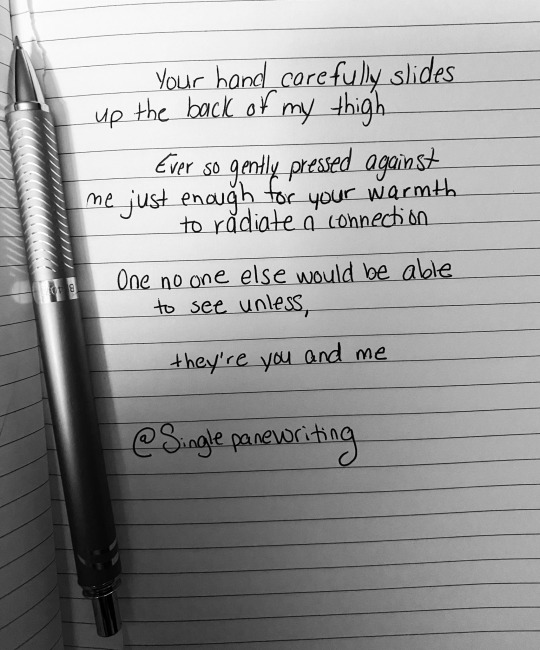 Your hand carefully slides
up the back of my thigh
Ever so gently pressed against
me just enough for your warmth
to radiate a connection
One no one else would be able
to see unless,
they're you and me
@Singlepanewriting